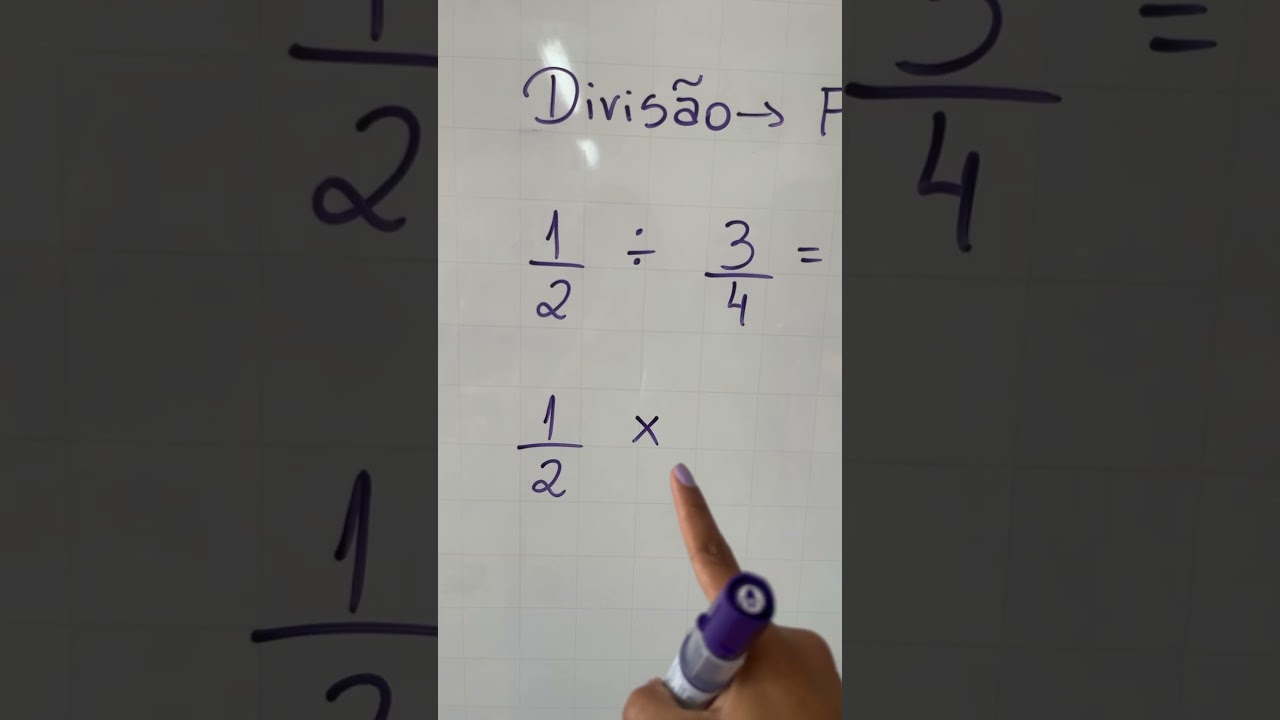 Divisão → F
1/2 ÷ 3/4 =
1/2 ×